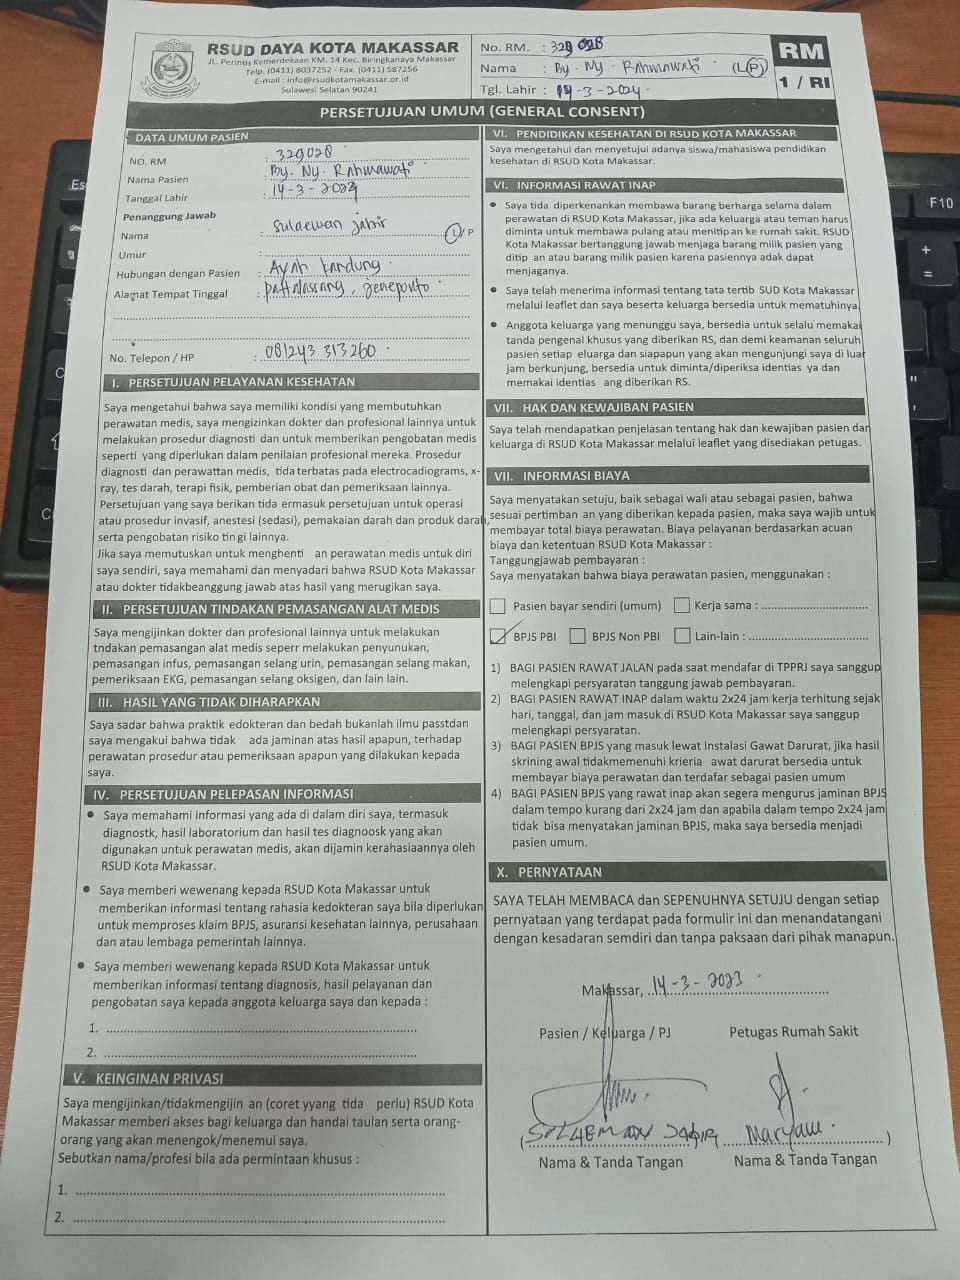 RSUD DAYA KOTA MAKASSAR
JL. Perintis Kemerdekaan KM. 14 Kec. Biringkanaya Makassar
Telp. (0411) 8037252 - Fax. (0411) 587256
E-mail : info@rsudkotamakassar.or.id
Sulawesi Selatan 90241
No. RM. : 329028
Nama : By. Ny. Rahmawati (L/P)
Tgl. Lahir : 14-3-2024.
RM
1 / RI
PERSETUJUAN UMUM (GENERAL CONSENT)
DATA UMUM PASIEN
NO. RM : 329028
Nama Pasien : By. Ny. Rahmawati
Tanggal Lahir : 14-3-2023
Penanggung Jawab
Nama : Sulaeman jabir L/P
Umur :
Hubungan dengan Pasien : Ayah kandung
Alamat Tempat Tinggal : pattalassang, jeneponto
No. Telepon / HP : 081243 313260
I. PERSETUJUAN PELAYANAN KESEHATAN
Saya mengetahui bahwa saya memiliki kondisi yang membutuhkan
perawatan medis, saya mengizinkan dokter dan profesional lainnya untuk
melakukan prosedur diagnosti dan untuk memberikan pengobatan medis
seperti yang diperlukan dalam penilaian profesional mereka. Prosedur
diagnosti dan perawattan medis, tida terbatas pada electrocadiograms, x-
ray, tes darah, terapi fisik, pemberian obat dan pemeriksaan lainnya.
Persetujuan yang saya berikan tida ermasuk persetujuan untuk operasi
atau prosedur invasif, anestesi (sedasi), pemakaian darah dan produk darah,
serta pengobatan risiko tin gi lainnya.
Jika saya memutuskan untuk menghenti an perawatan medis untuk diri
saya sendiri, saya memahami dan menyadari bahwa RSUD Kota Makassar
atau dokter tidakbeanggung jawab atas hasil yang merugikan saya.
II. PERSETUJUAN TINDAKAN PEMASANGAN ALAT MEDIS
Saya mengijinkan dokter dan profesional lainnya untuk melakukan
tndakan pemasangan alat medis seperr melakukan penyunukan,
pemasangan infus, pemasangan selang urin, pemasangan selang makan,
pemeriksaan EKG, pemasangan selang oksigen, dan lain lain.
III. HASIL YANG TIDAK DIHARAPKAN
Saya sadar bahwa praktik edokteran dan bedah bukanlah ilmu passtdan
saya mengakui bahwa tidak ada jaminan atas hasil apapun, terhadap
perawatan prosedur atau pemeriksaan apapun yang dilakukan kepada
saya.
IV. PERSETUJUAN PELEPASAN INFORMASI
• Saya memahami informasi yang ada di dalam diri saya, termasuk
diagnostk, hasil laboratorium dan hasil tes diagnoosk yang akan
digunakan untuk perawatan medis, akan dijamin kerahasiaannya oleh
RSUD Kota Makassar.
• Saya memberi wewenang kepada RSUD Kota Makassar untuk
memberikan informasi tentang rahasia kedokteran saya bila diperlukan
untuk memproses klaim BPJS, asuransi kesehatan lainnya, perusahaan
dan atau lembaga pemerintah lainnya.
• Saya memberi wewenang kepada RSUD Kota Makassar untuk
memberikan informasi tentang diagnosis, hasil pelayanan dan
pengobatan saya kepada anggota keluarga saya dan kepada :
1.
2.
V. KEINGINAN PRIVASI
Saya mengijinkan/tidakmengijin an (coret yyang tida perlu) RSUD Kota
Makassar memberi akses bagi keluarga dan handai taulan serta orang-
orang yang akan menengok/menemui saya.
Sebutkan nama/profesi bila ada permintaan khusus :
1.
2.
VI. PENDIDIKAN KESEHATAN DI RSUD KOTA MAKASSAR
Saya mengetahui dan menyetujui adanya siswa/mahasiswa pendidikan
kesehatan di RSUD Kota Makassar.
VI. INFORMASI RAWAT INAP
• Saya tida diperkenankan membawa barang berharga selama dalam
perawatan di RSUD Kota Makassar, jika ada keluarga atau teman harus
diminta untuk membawa pulang atau menitip an ke rumah sakit. RSUD
Kota Makassar bertanggung jawab menjaga barang milik pasien yang
ditip an atau barang milik pasien karena pasiennya adak dapat
menjaganya.
• Saya telah menerima informasi tentang tata tertib SUD Kota Makassar
melalui leaflet dan saya beserta keluarga bersedia untuk mematuhinya.
• Anggota keluarga yang menunggu saya, bersedia untuk selalu memakai
tanda pengenal khusus yang diberikan RS, dan demi keamanan seluruh
pasien setiap eluarga dan siapapun yang akan mengunjungi saya di luar
jam berkunjung, bersedia untuk diminta/diperiksa identias ya dan
memakai identias ang diberikan RS.
VII. HAK DAN KEWAJIBAN PASIEN
Saya telah mendapatkan penjelasan tentang hak dan kewajiban pasien dan
keluarga di RSUD Kota Makassar melalui leaflet yang disediakan petugas.
VII. INFORMASI BIAYA
Saya menyatakan setuju, baik sebagai wali atau sebagai pasien, bahwa
sesuai pertimban an yang diberikan kepada pasien, maka saya wajib untuk
membayar total biaya perawatan. Biaya pelayanan berdasarkan acuan
biaya dan ketentuan RSUD Kota Makassar :
Tanggungjawab pembayaran :
Saya menyatakan bahwa biaya perawatan pasien, menggunakan :
Pasien bayar sendiri (umum) Kerja sama :
BPJS PBI BPJS Non PBI Lain-lain :
1) BAGI PASIEN RAWAT JALAN pada saat mendafar di TPPRJ saya sanggup
melengkapi persyaratan tanggung jawab pembayaran.
2) BAGI PASIEN RAWAT INAP dalam waktu 2x24 jam kerja terhitung sejak
hari, tanggal, dan jam masuk di RSUD Kota Makassar saya sanggup
melengkapi persyaratan.
3) BAGI PASIEN BPJS yang masuk lewat Instalasi Gawat Darurat, jika hasil
skrining awal tidakmemenuhi krieria awat darurat bersedia untuk
membayar biaya perawatan dan terdafar sebagai pasien umum
4) BAGI PASIEN BPJS yang rawat inap akan segera mengurus jaminan BPJS
dalam tempo kurang dari 2x24 jam dan apabila dalam tempo 2x24 jam
tidak bisa menyatakan jaminan BPJS, maka saya bersedia menjadi
pasien umum.
X. PERNYATAAN
SAYA TELAH MEMBACA dan SEPENUHNYA SETUJU dengan setiap
pernyataan yang terdapat pada formulir ini dan menandatangani
dengan kesadaran semdiri dan tanpa paksaan dari pihak manapun.
Makassar, 14-3-2023
Pasien / Keluarga / PJ Petugas Rumah Sakit
(SULAEMAN JABIR Maryam.)
Nama & Tanda Tangan Nama & Tanda Tangan
F10